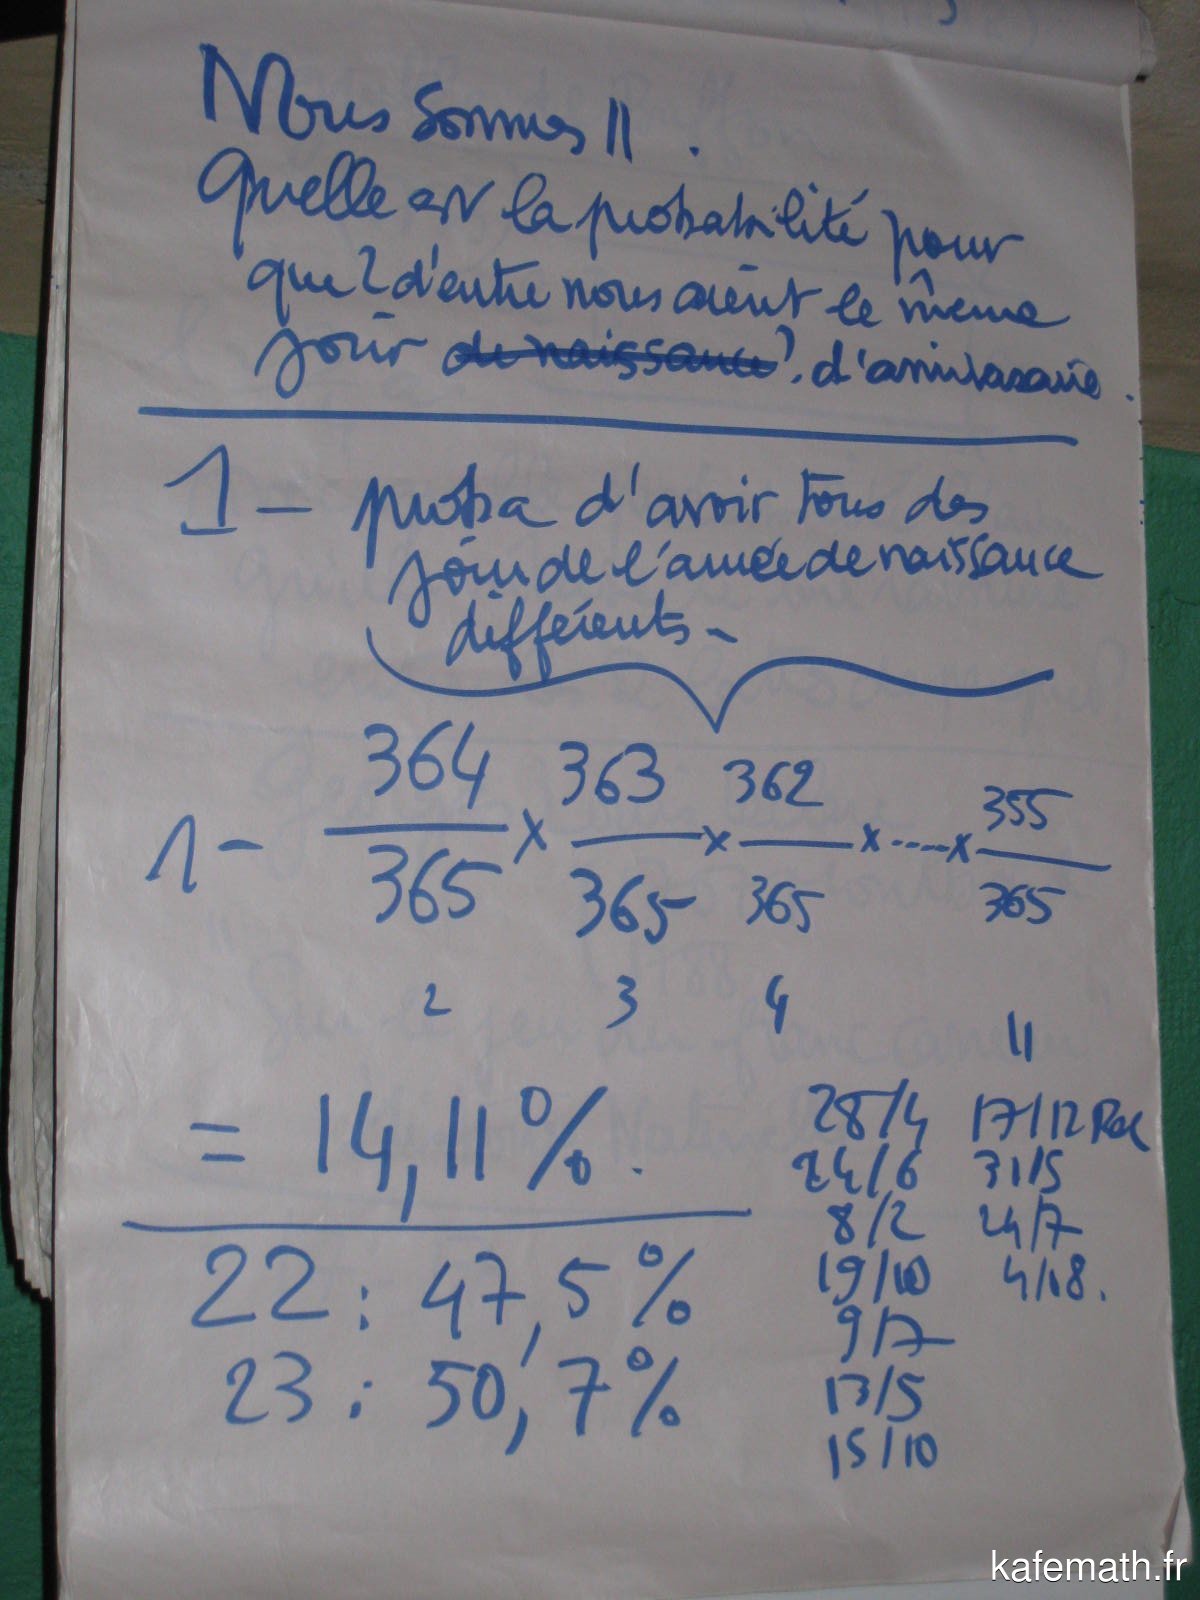 Nous sommes 11.
Quelle est la probabilité pour
que 2 d'entre nous aient le même
jour de naissance ?. d'anniversaire.
1 - proba d'avoir tous des
jours de l'année de naissance
différents -
1 - 364/365 x 363/365 x 362/365 x ..... x 355/365
2 3 4 11
= 14,11 %.
22 : 47,5 %
23 : 50,7 %
28/4
24/6
8/2
19/10
9/7
13/5
15/10
17/12
31/5
24/7
kafemath.fr